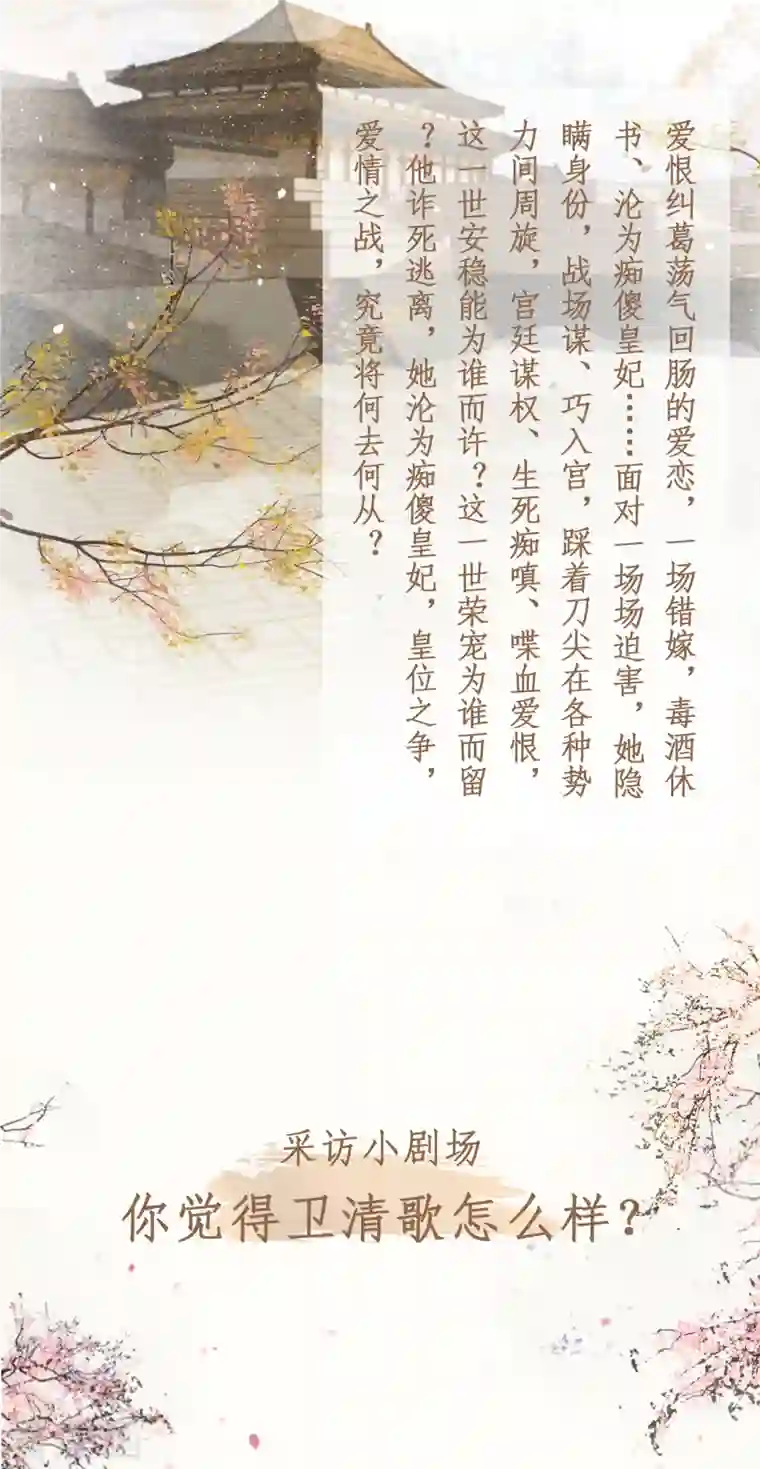 爱恨纠葛荡气回肠的爱恋，一场错嫁，毒酒休
书、沦为痴傻皇妃……面对一场场迫害，她隐
瞒身份，战场谋、巧入宫，踩着刀尖在各种势
力间周旋，宫廷谋权、生死痴嗔、喋血爱恨，
这一世安稳能为谁而许？这一世荣宠为谁而留
？他诈死逃离，她沦为痴傻皇妃，皇位之争，
爱情之战，究竟将何去何从？
采访小剧场
你觉得卫清歌怎么样？